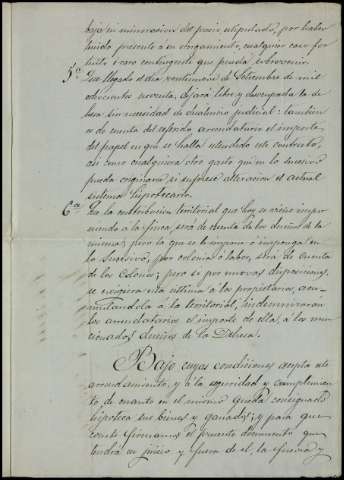 baja ni minoracion del precio estipulado, por haber
tenido presente a su otorgamiento, cualquier caso for
tuito o raro contingente que pueda sobrevenir.
5ª Que llegado el dia veintinueve de Setiembre de mil
ochocientos noventa, dejará libre y desocupada la de
hesa sin necesidad de desahucio judicial: tambien
es de cuenta del referido arrendatario el importe
del papel en que se halla estendido este contrato,
asi como cualquiera otro gasto que en lo sucesivo
pueda originarse si sufriese alteracion el actual
sistema hipotecario.
6ª Que la contribucion territorial que hoy se viene impo
niendo a la finca, será de cuenta de los dueños de la
misma; pero la que se imponga en
lo sucesivo, por colonia o labor, será de cuenta
de los Colonos; pero si por nuevas disposiciones
se exigiera esta última a los propietarios, acu
mulandola a la territorial, indemnizaran
los arrendatarios el importe de ella, a los men
cionados dueños de la Dehesa.
Bajo cuyas condiciones acepta este
arrendamiento, y a la seguridad y cumplimien
to de cuanto en el mismo queda consignado
hipoteca sus bienes y ganados; y para que
conste firmamos el presente documento que
tendrá en juicio y fuera de el, la fuerza y